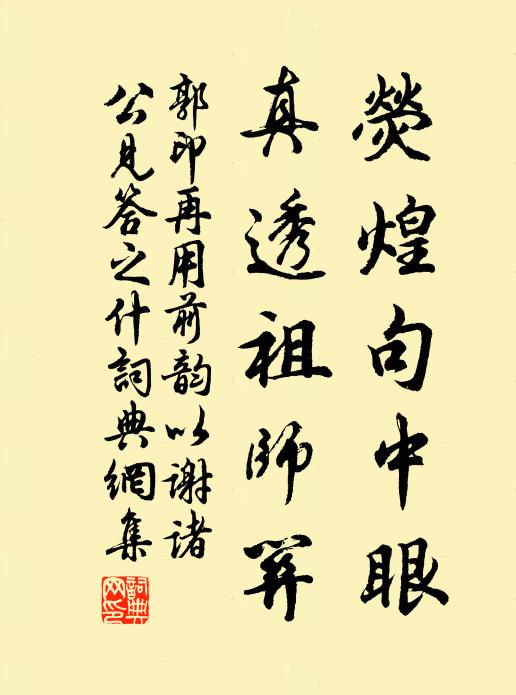 熒煌句中眼
真透祖師關
郭印再用前韵以謝諸
公見答之什詞典網集
詞典网印